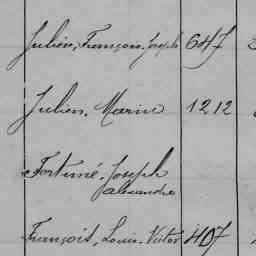 Julien, François Joseph 647
Julien, Marin 1212
Fortuné, Joseph
alexandre
François, Louis Victor 407